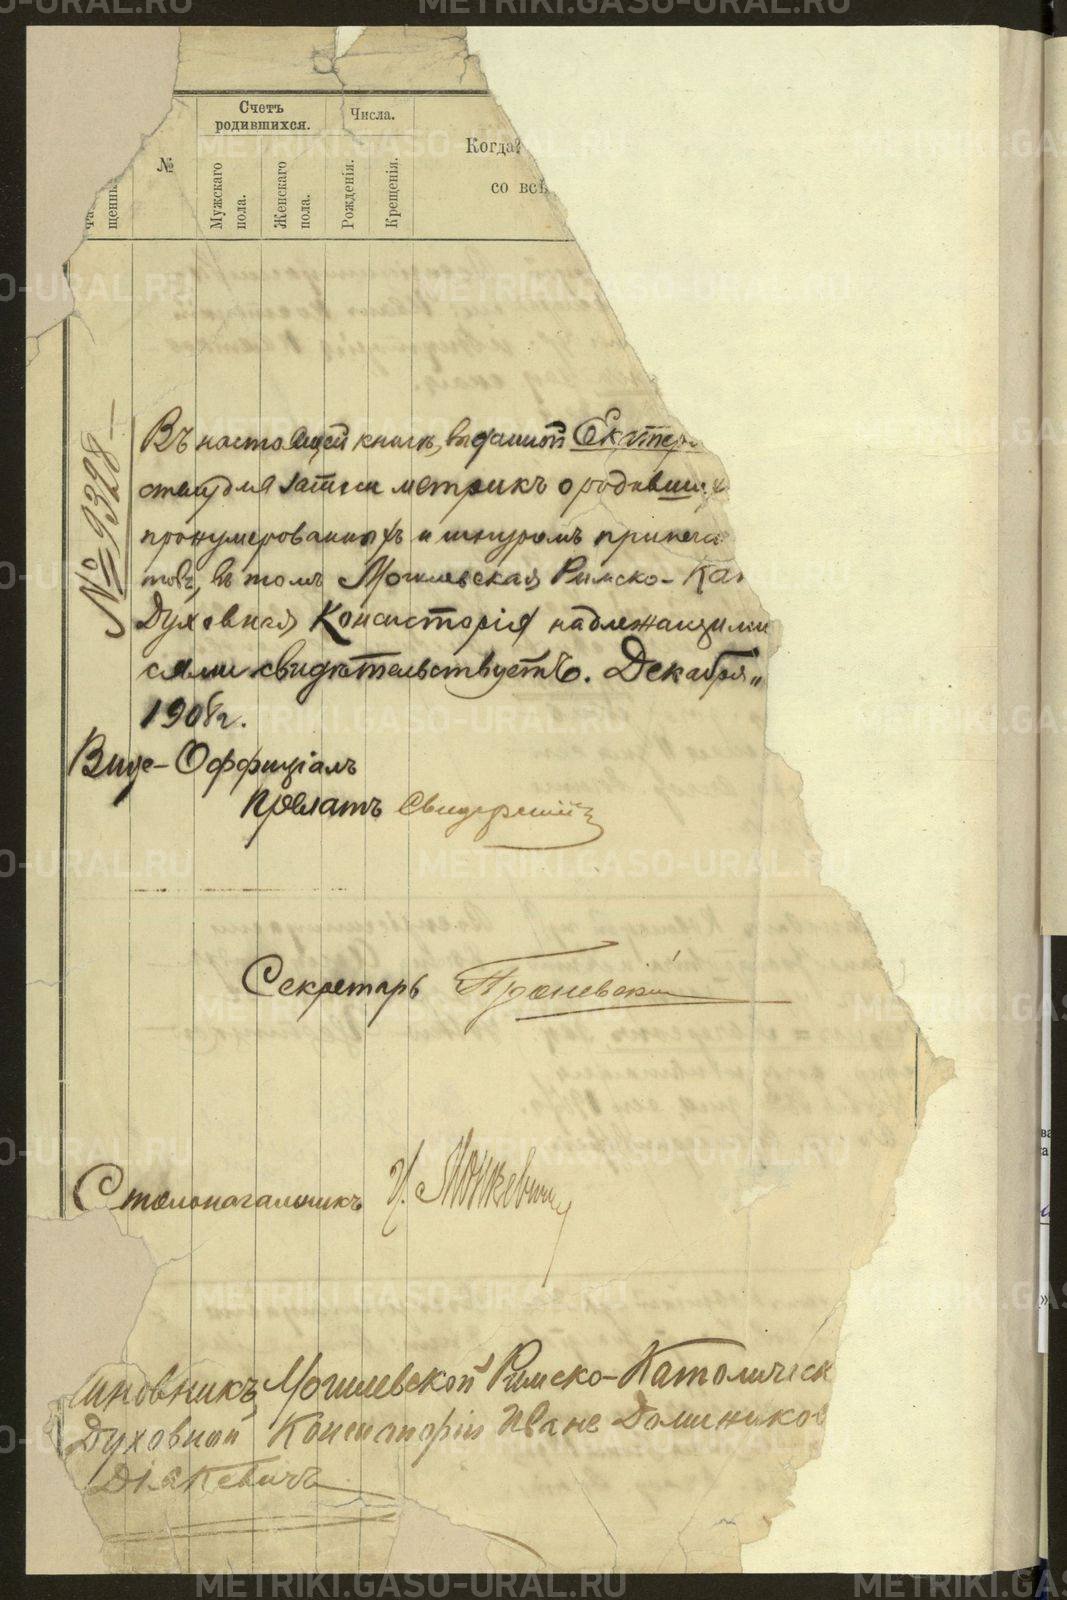 Счетъ
родившихся.
Числа.
№
Мужскаго
пола.
Женскаго
пола.
Рожденія.
Крещенія.
Когда?
со всѣ
щенны
№ 9328
Въ настоящей книгѣ, выданной Екатер
для записи метрикъ о родивших
пронумерованныхъ и шнуромъ припеча
въ томъ Могилевская Римско-Ка
Духовная Консисторія надлежащими
свидѣтельствуетъ. Декабря „
1908 г.
Вице-Оффиціалъ
Прелатъ Свидерскій
Секретарь
Столоначальникъ И.
иновникъ Могилевской Римско-Католическ
Духовной Консисторіи Иванъ Домиников
METRIKI.GASO-URAL.RU